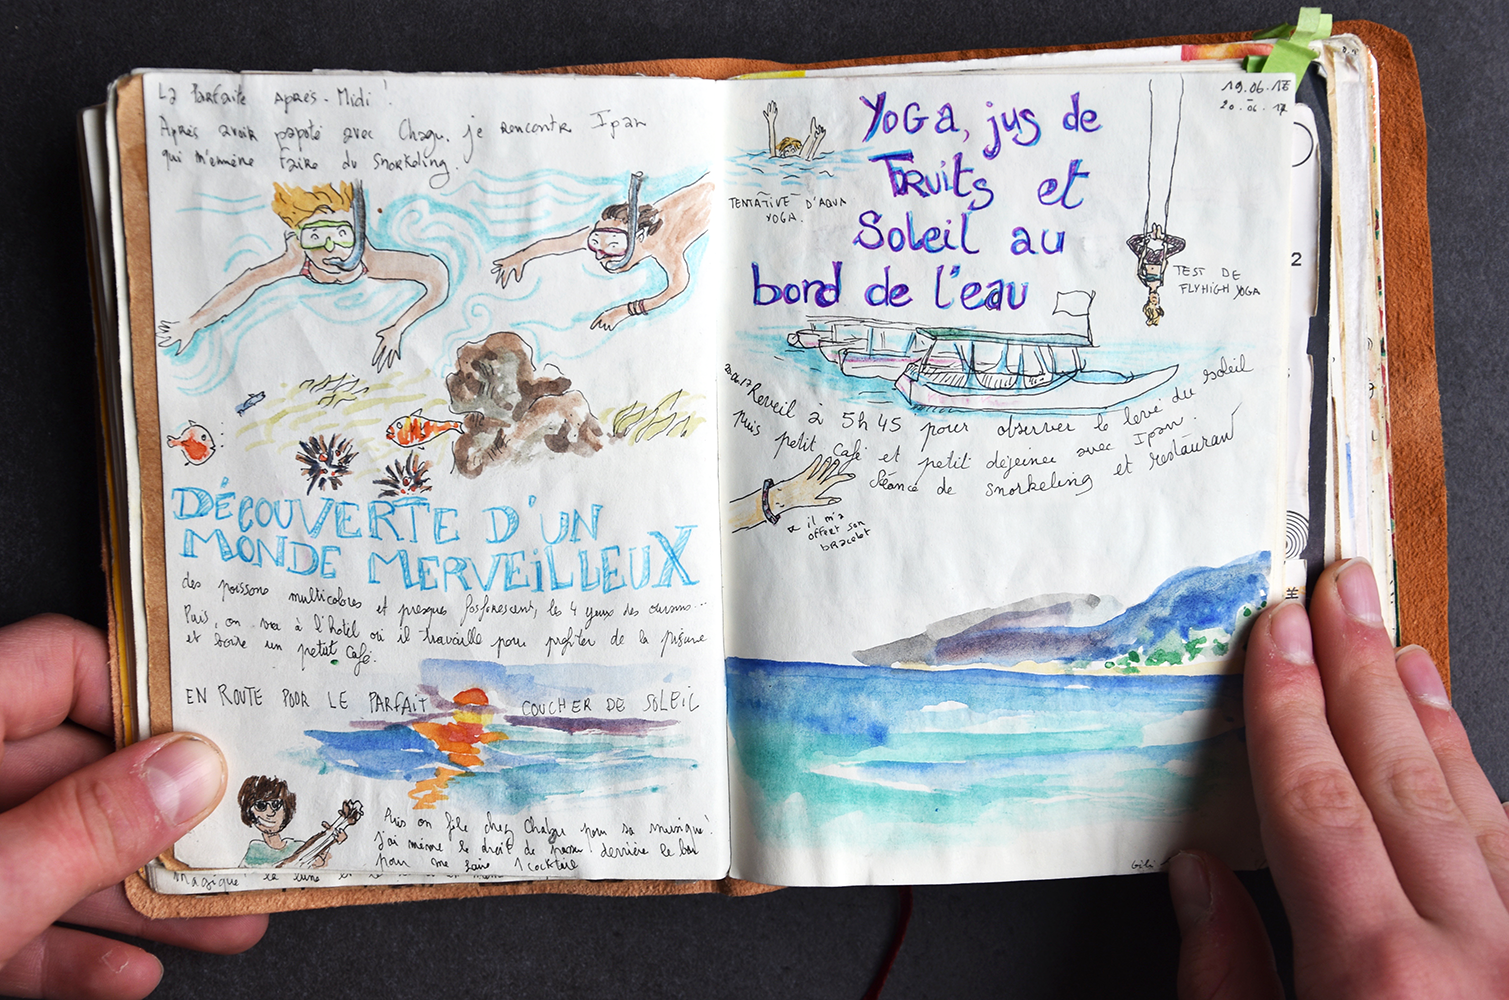 La Parfaite Après-Midi !
Après avoir papoté avec Chagu, je rencontre Ipan
qui m'emmène faire du snorkeling.
DÉCOUVERTE D'UN
MONDE MERVEILLEUX
des poissons multicolores et presques fosforescent, les 4 yeux des oursins...
Puis, on va à l'hotel où il travaille pour profiter de la piscine
et boire un petit café.
EN ROUTE POUR LE PARFAIT COUCHER DE SOLEIL
Puis on file chez Chagu pour sa musique !
J'ai même le droit de passer derrière le bar
pour me faire 1 cocktail
magique ! la lune et
19.06.17
20.06.17
YOGA, jus de
FRuits et
Soleil au
bord de l'eau
TENTATIVE D'AQUA
YOGA.
TEST DE
FLYHIGH YOGA
20.06.17 Reveil à 5h45 pour observer le levé du soleil
puis petit café et petit déjeiner avec Ipan.
Séance de snorkeling et restaurant
il m'a
offert son
bracelet
Gili
2